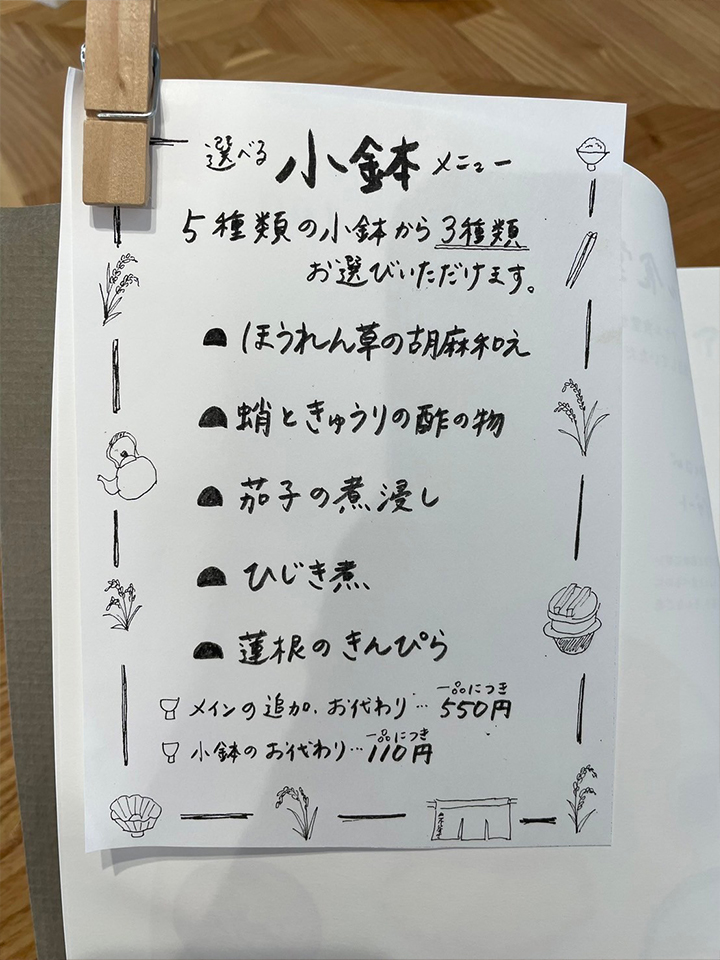 選べる 小鉢 メニュー
5種類の小鉢から3種類
お選びいただけます。
ほうれん草の胡麻和え
蛸ときゅうりの酢の物
茄子の煮浸し
ひじき煮
蓮根のきんぴら
一品につき
メインの追加、お代わり…550円
一品につき
小鉢のお代わり…110円